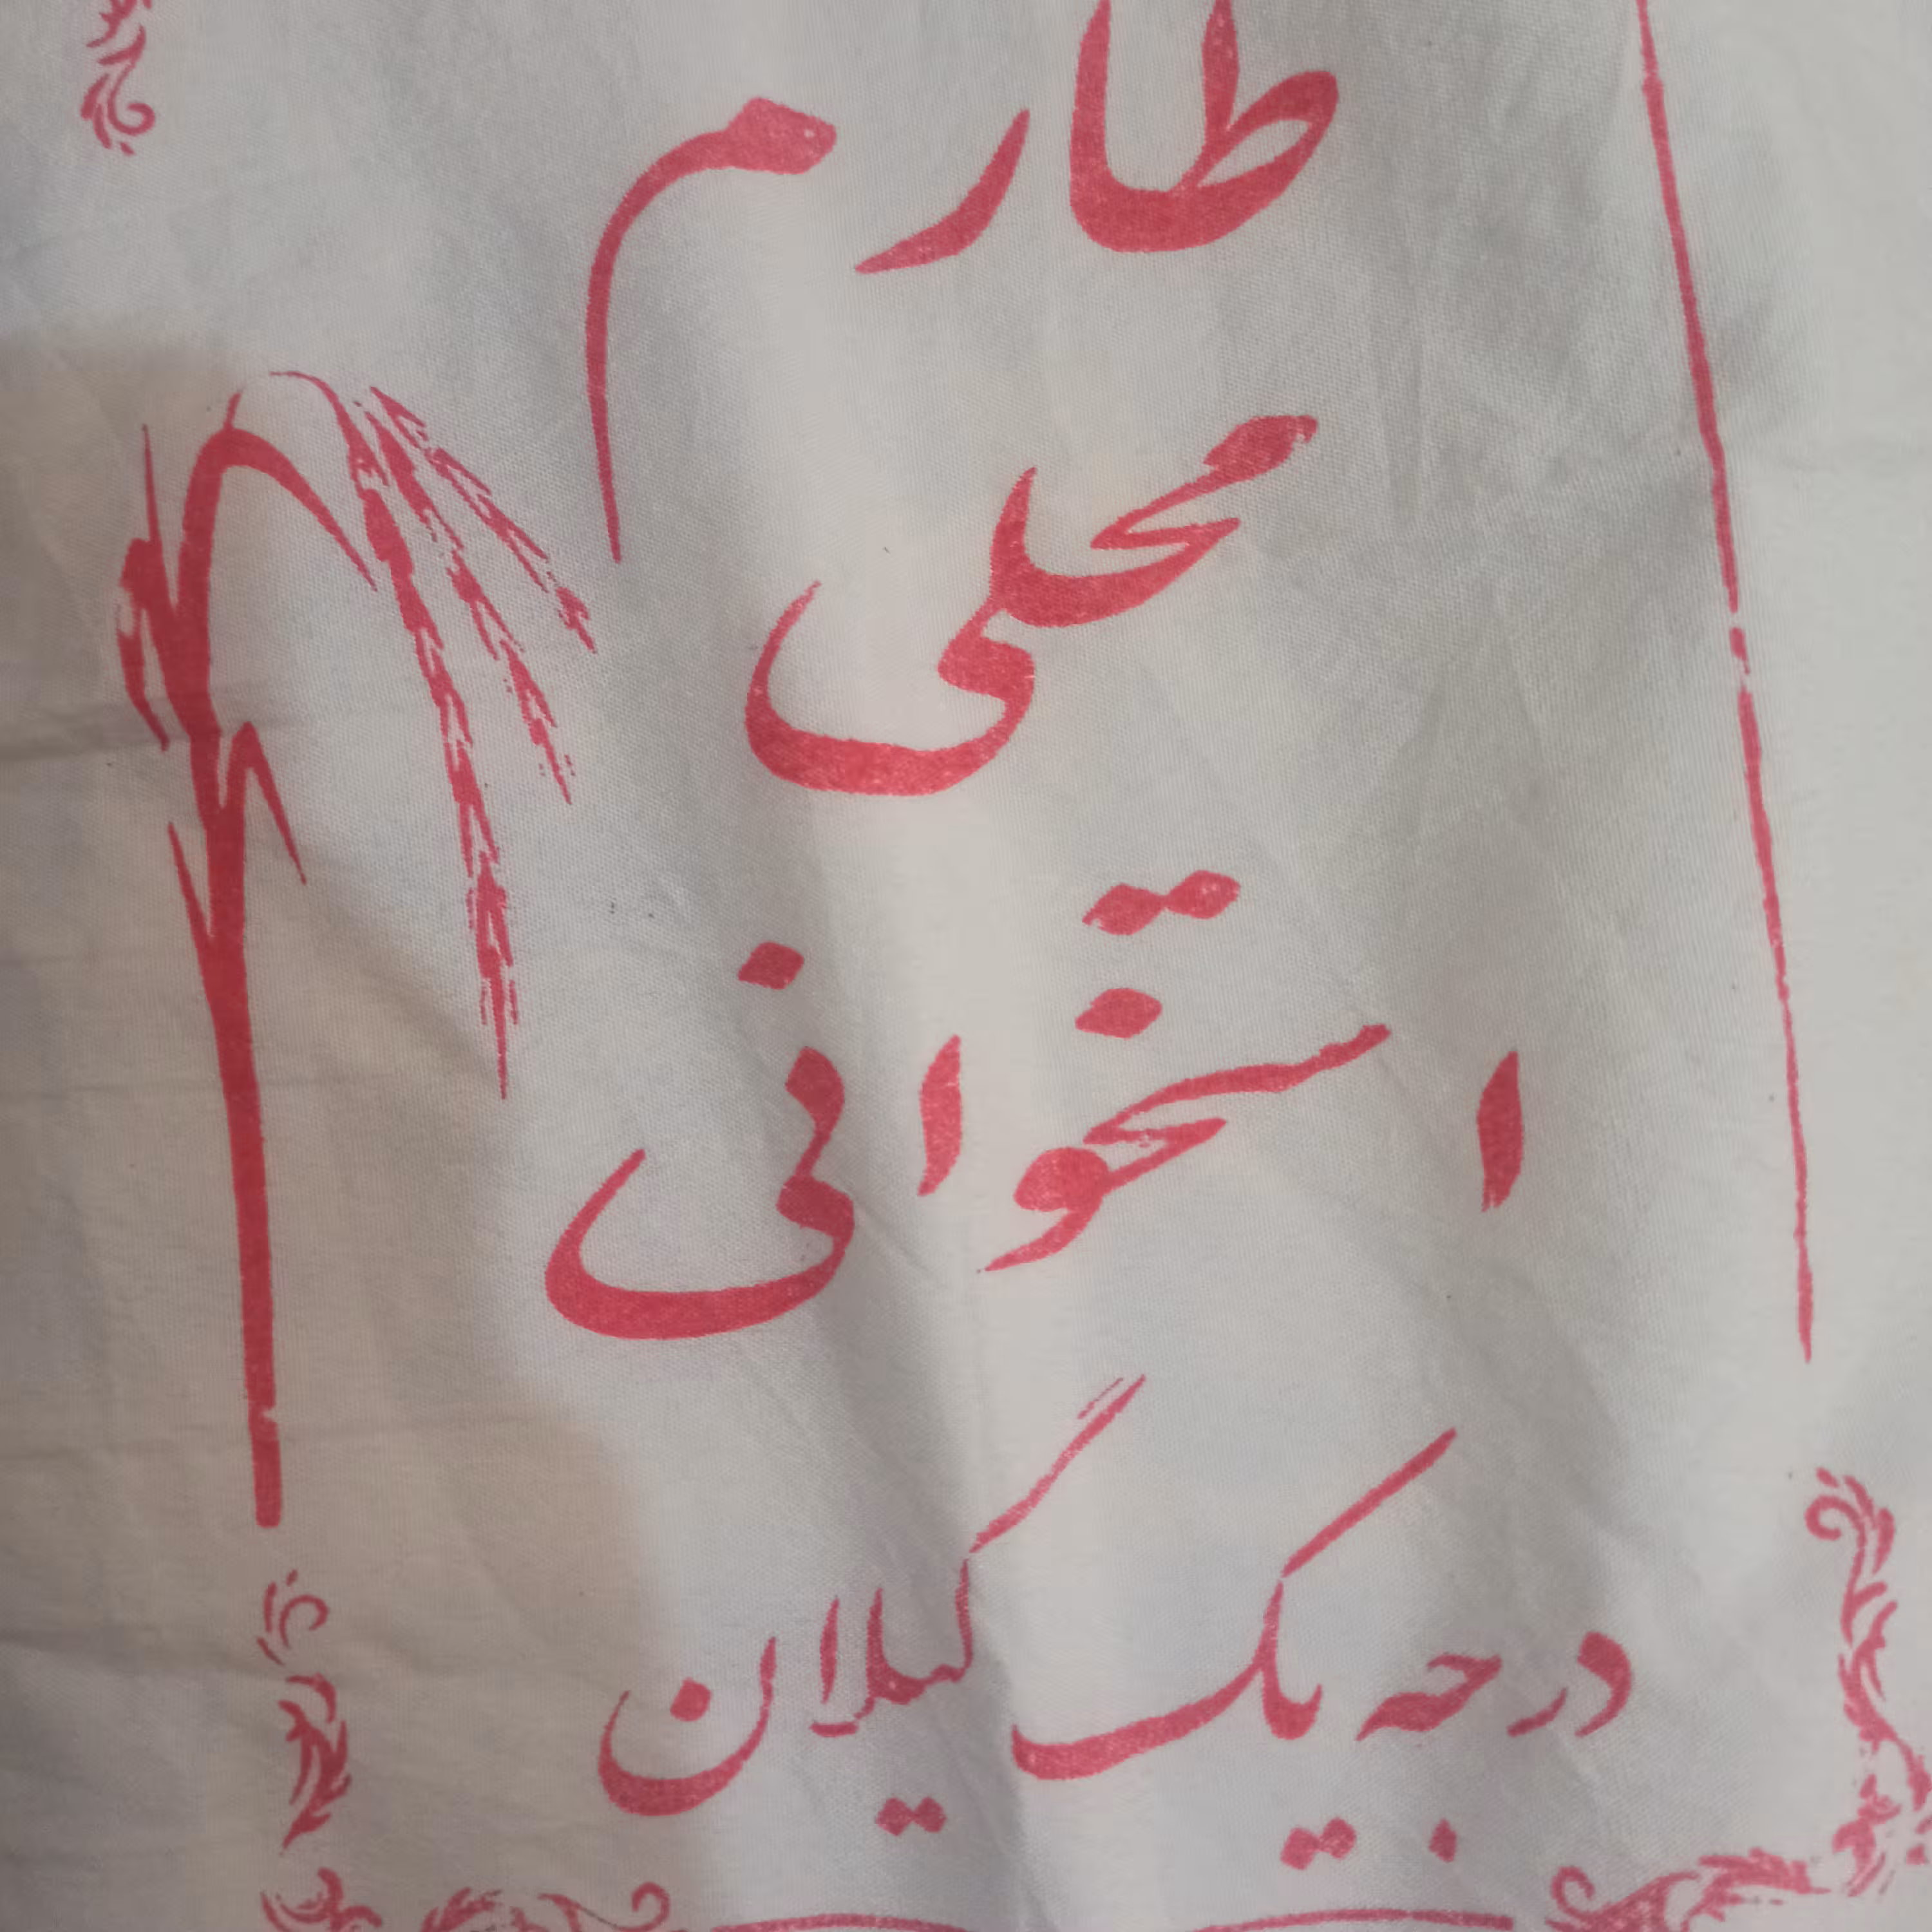 طارم
محلی
استخوانی
درجه یک گیلان